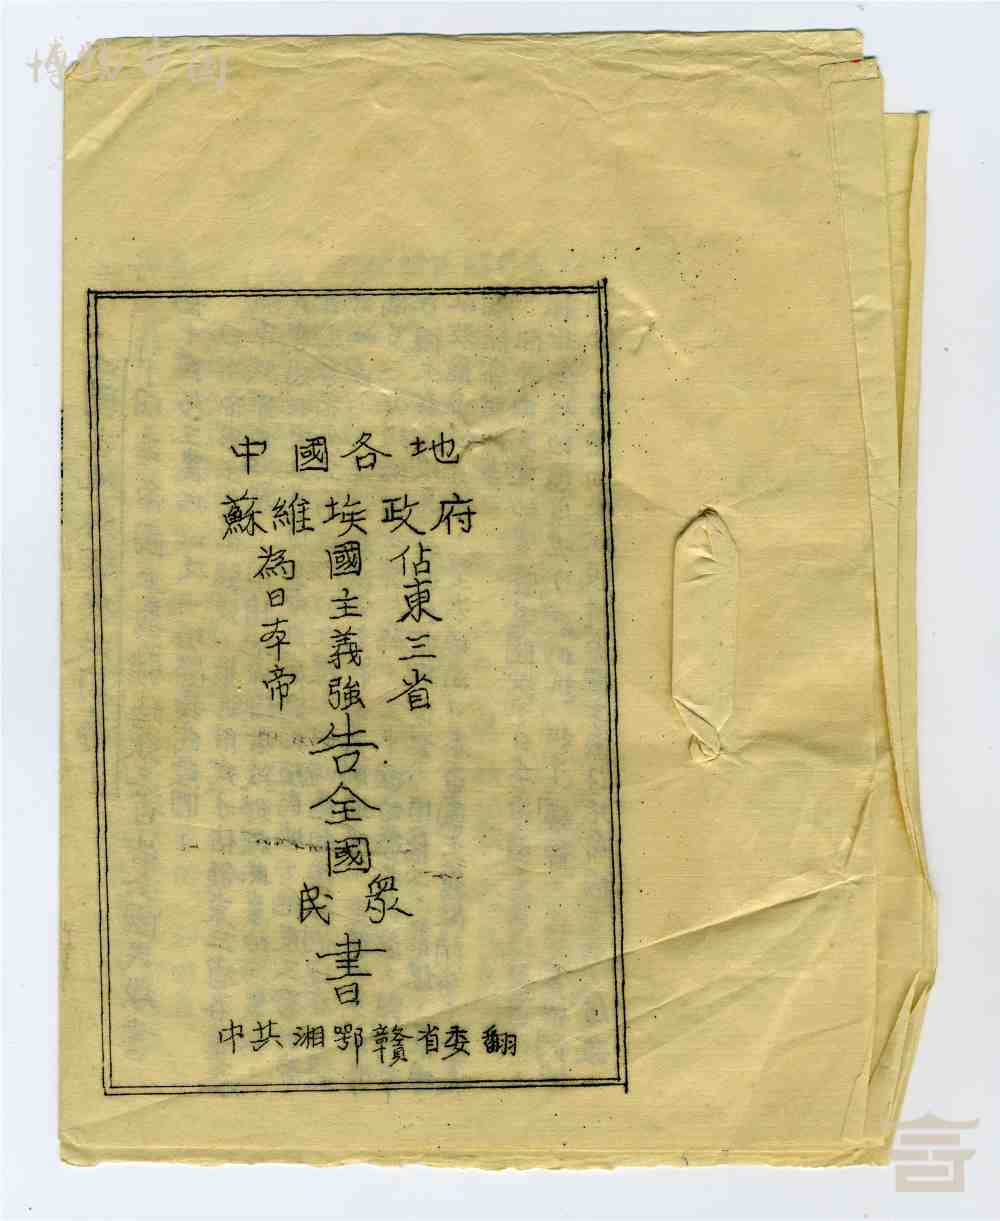 博物中国
中國各地
蘇維埃政府
為日本帝
國主義強
佔東三省
告全國
民眾
書
中共湘鄂贛省委翻